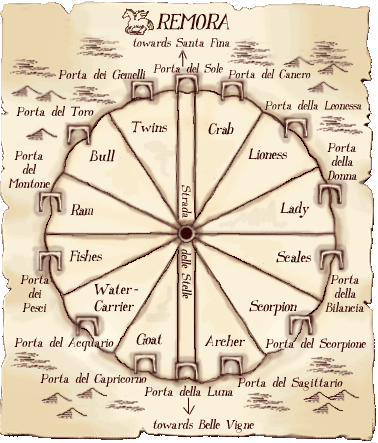 REMORA
towards Santa Fina
Porta del Sole
Porta dei Gemelli
Porta del Cancro
Porta del Toro
Porta della Leonessa
Twins
Crab
Bull
Lioness
Porta
del
Montone
Porta
della
Donna
Ram
Lady
Strada
delle Stelle
Fishes
Scales
Porta
dei
Pesci
Porta
della
Bilancia
Water-
Carrier
Scorpion
Goat
Archer
Porta del Acquario
Porta del Scorpione
Porta del Capricorno
Porta del Sagittario
Porta della Luna
towards Belle Vigne